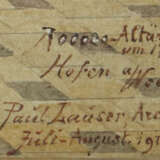 Rococo-Altar
um 1
Hofen a/See
Paul Lauser, Arc
Juli-August. 19